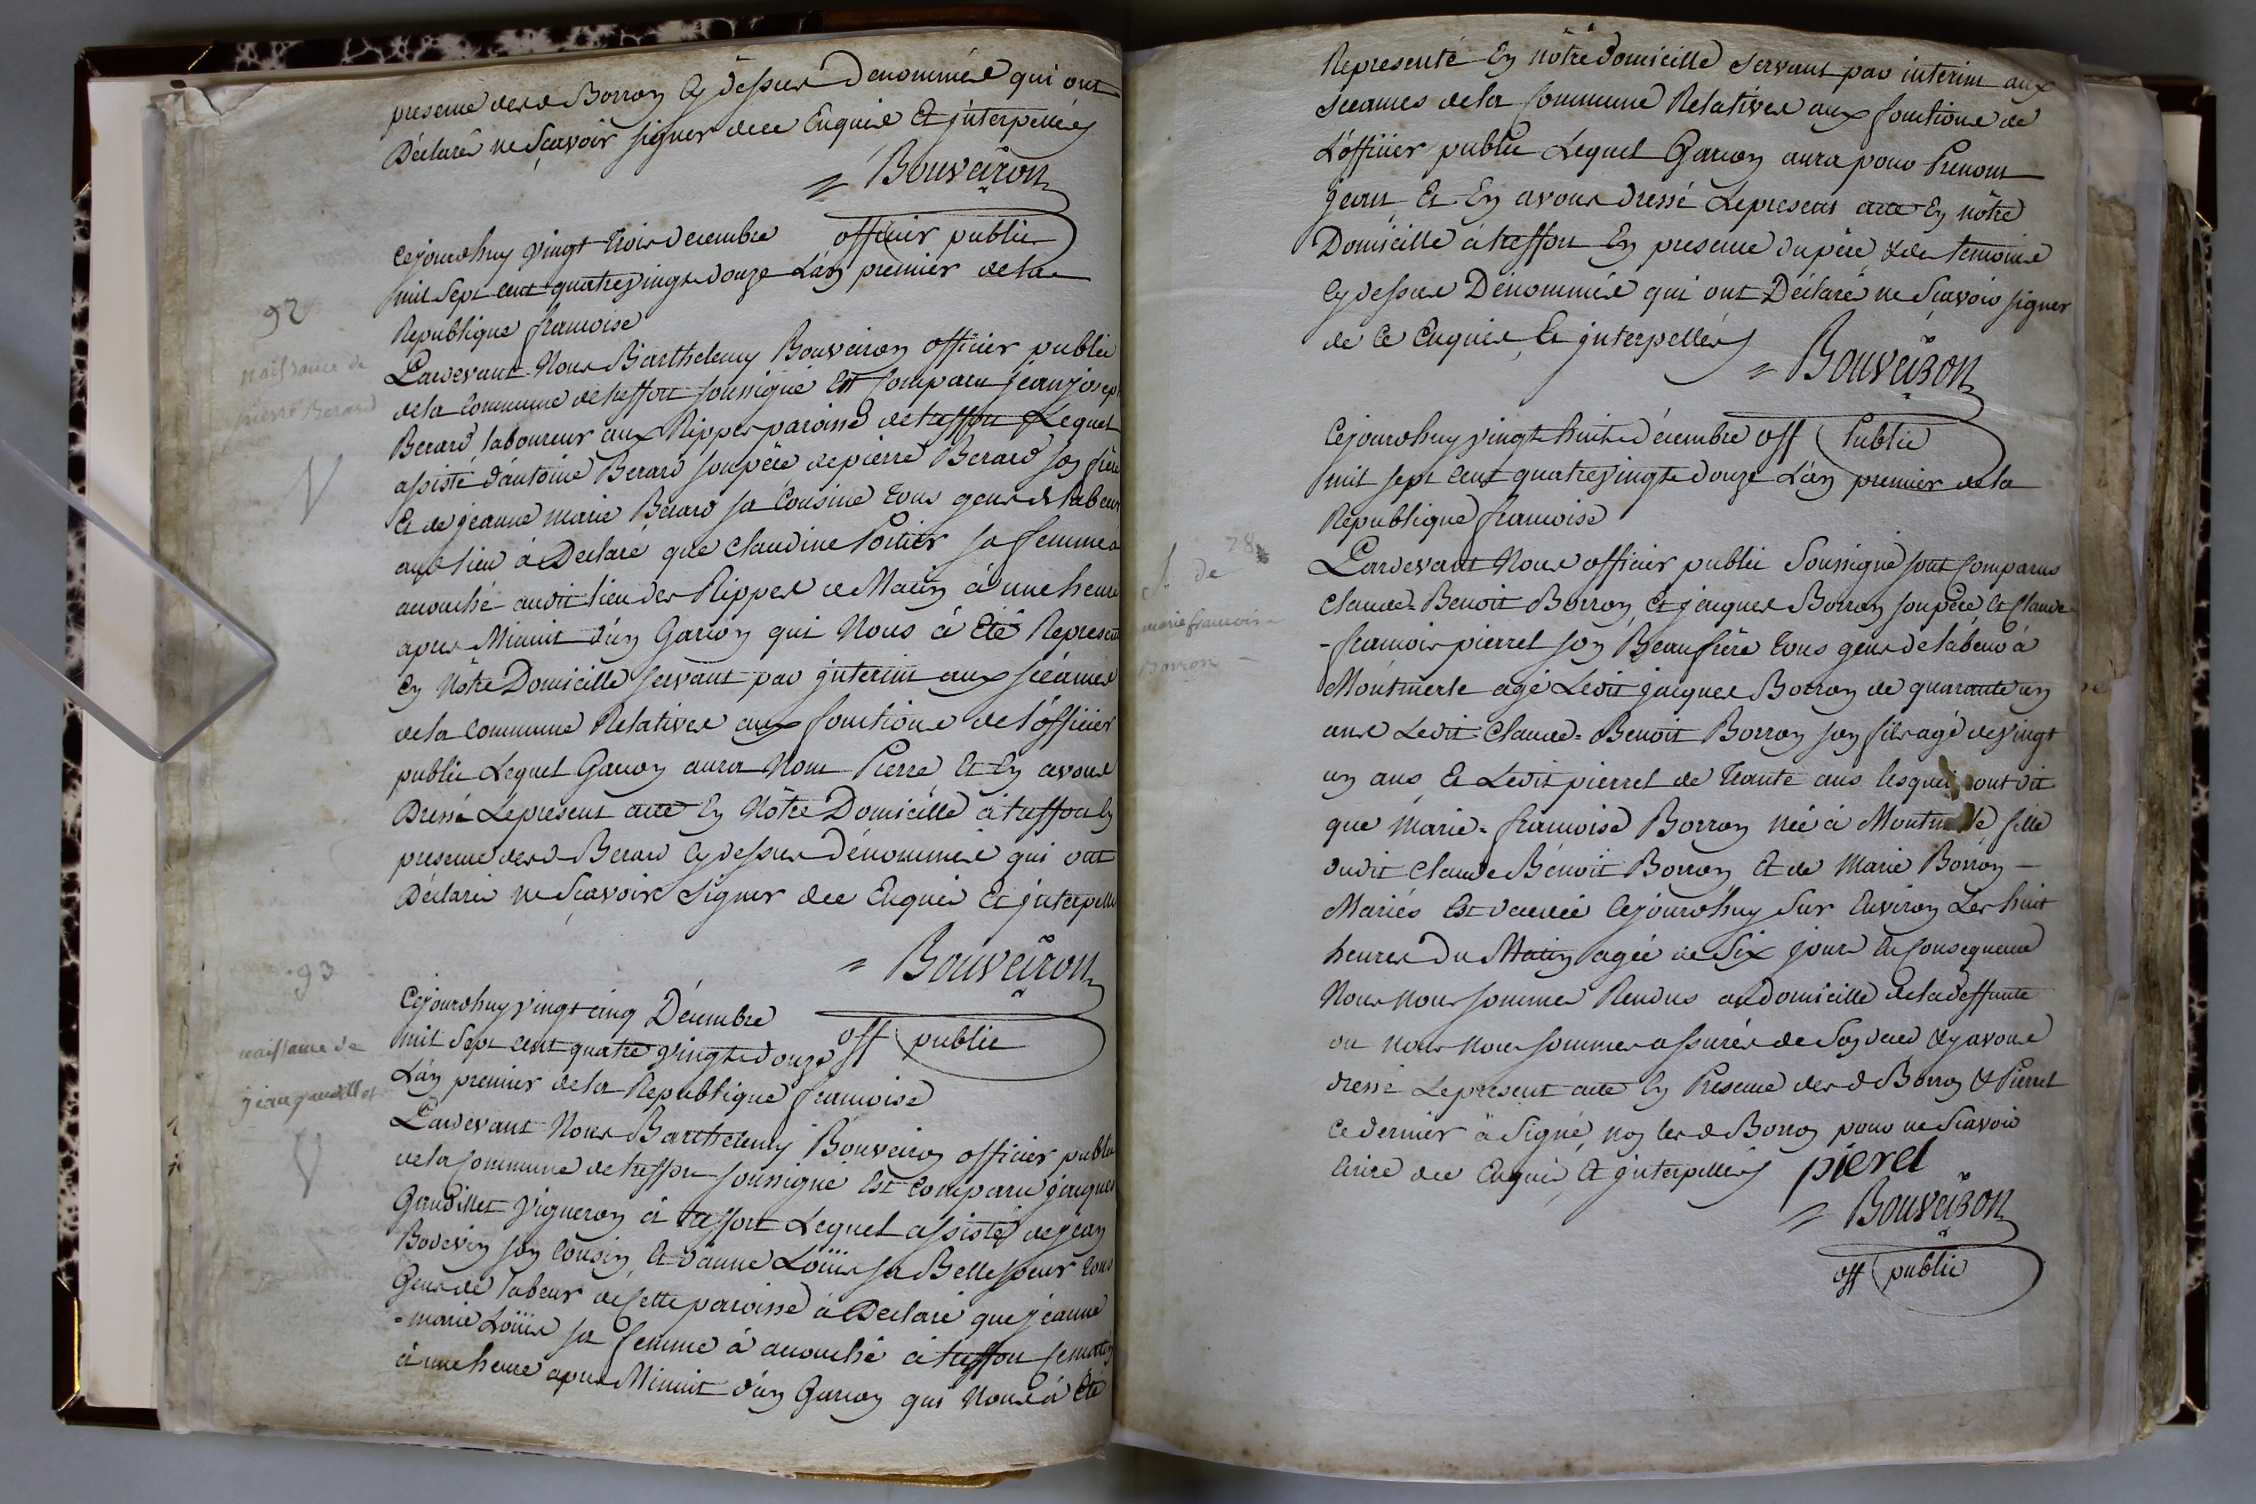 presence desd Borron cy dessus Denommés qui ont
Déclaré ne Sçavoir signer dece Enquis Et jnterpellés
= Bouveiron
officier public
Cejourdhuy vingt trois decembre
mil sept cent quatrevingt douze L'an premier dela
Republique françoise
92
naissance de
pierre Berard
Pardevant Nous Barthelemy Bouveiron officier public
dela Commune de treffort soussigné Est Comparu jean joseph
Berard laboureur aux Rippes paroisse de treffort Lequel
assisté d'antoine Berard son père de pierre Berard son frère
Et de jeanne marie Berard sa Cousine tous gens de labeur
aud lieu à Declaré que Claudine Poitier sa femme a
accouché audit lieu des Rippes ce Matin à une heure
apres Minuit d'un Garçon qui Nous à Eté Representé
En Nôtre Domicille servant par jnterim aux scéances
dela Commune Relatives aux fonctions de l'officier
public Lequel Garçon aura Nom Pierre Et En avons
Dressé Le present acte En Nôtre Domicille à treffort En
presence desd Berard cy dessus Dénommés qui ont
Déclarés ne Sçavoire signer dece Enquis Et jnterpellé
= Bouveiron
off public
93
naissance de
jean gaudillet
Cejourdhuy vingt cinq Décembre
mil Sept cent quatre vingt douze
L'an premier dela Republique françoise
Pardevant Nous Barthelemy Bouveiron officier public
dela Commune de treffort soussigné Est Comparu jacques
Gaudillet Vigneron à treffort Lequel assisté de jean
Bodevin son Cousin Et d'anne Loüis sa Belle soeur tous
Gens de labeur de Cette paroisse à Declaré que jeanne
=marie Loüis sa femme à accouché à treffort ce matin
à une heure apres Minuit d'un Garçon qui Nous à Eté
Representé En nôtre domicille servant par interim aux
sceances dela Commune Relatives aux fonctions de
L'officier public Lequel Garçon aura pour Prenom
jean Et En avons dressé Le present acte En nôtre
Domicille à treffort En presence du père & des temoins
cy dessus Dénommés qui ont Déclaré ne Sçavoir signer
de Ce Enquis Et jnterpellés
= Bouveiron
off Public
Cejourdhuy vingt huit décembre
mil sept cent quatrevingt douze L'an premier dela
Republique françoise
28
de
marie francoise
Borron
Pardevant Nous officier public Soussigné sont Comparus
Claude-Benoit Borron et jacques Borron son père Et Claude
-françois pierrel son Beaufrère tous gens de labeur à
Montmerle agé Ledit jacques Borron de quarante un
ans Ledit Claude-Benoit Borron son fils agé de vingt
un ans Et Ledit pierrel de trante ans lesquels ont dit
que Marie-françoise Borron née à Montmerle fille
dudit Claude Bénoit Borron Et de Marie Borron
Mariés Est decedée Cejourdhuy Sur Environ Les huit
heures Du Matin agée de Six jours En Consequence
Nous nous sommes Rendus au domicille dela deffunte
ou nous nous sommes assurés de Son deces & y avons
dressé Le present acte En Presence des d Borron & Pierrel
Ce dernier à Signé, non les d Borron pour ne Scavoir
Ecrire dece Enquis Et jnterpellés
pierel
= Bouveiron
off public